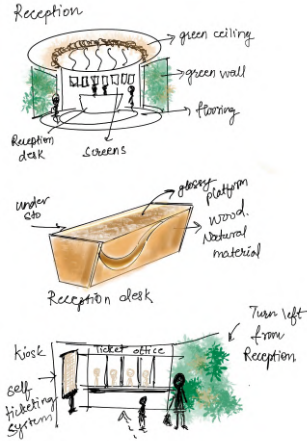 Reception
green ceiling
green wall
flooring
Reception
desk
screens
glossy
platform
under
sto
wood.
Natural
material
Reception desk
Turn left
from
Reception.
Kiosk
Ticket office
self
ticketing
system